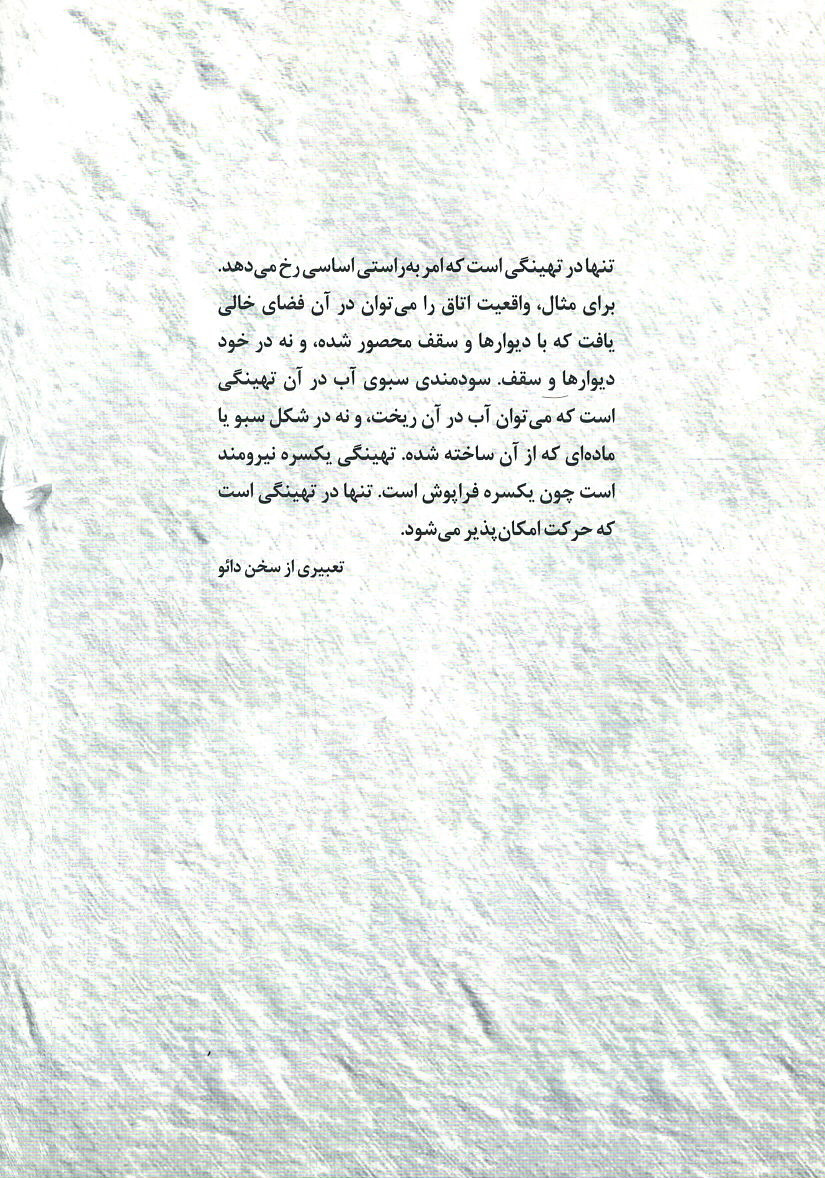 تنها در تهینگی است که امر به‌راستی اساسی رخ می‌دهد.
برای مثال، واقعیت اتاق را می‌توان در آن فضای خالی
یافت که با دیوارها و سقف محصور شده، و نه در خود
دیوارها و سقف. سودمندی سبوی آب در آن تهینگی
است که می‌توان آب در آن ریخت، و نه در شکل سبو یا
ماده‌ای که از آن ساخته شده. تهینگی یکسره نیرومند
است چون یکسره فراپوش است. تنها در تهینگی است
که حرکت امکان‌پذیر می‌شود.
تعبیری از سخن دائو